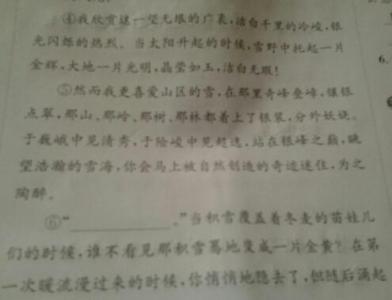 ④我欣赏这一望无垠的广袤，洁白千里的冷峻，银
光闪烁的热烈。当太阳升起的时候，雪野中托起一片
金辉，大地一片光明，晶莹如玉，洁白无瑕！
⑤然而我更喜爱山区的雪，在那里奇峰叠嶂，镶银
点翠，那山、那岭、那树、那林都着上了银装，分外妖娆。
于巍峨中见清秀，于险峻中见超逸，站在银峰之巅，眺
望浩瀚的雪海，你会马上被自然创造的奇迹迷住，为之
陶醉。
⑥“____________。”当积雪覆盖着冬麦的苗娃儿
们的时候，谁不看见那积雪蓦地变成一片金黄？在第
一次暖流漫过来的时候，你悄悄地隐去了，但随后涌起
6.